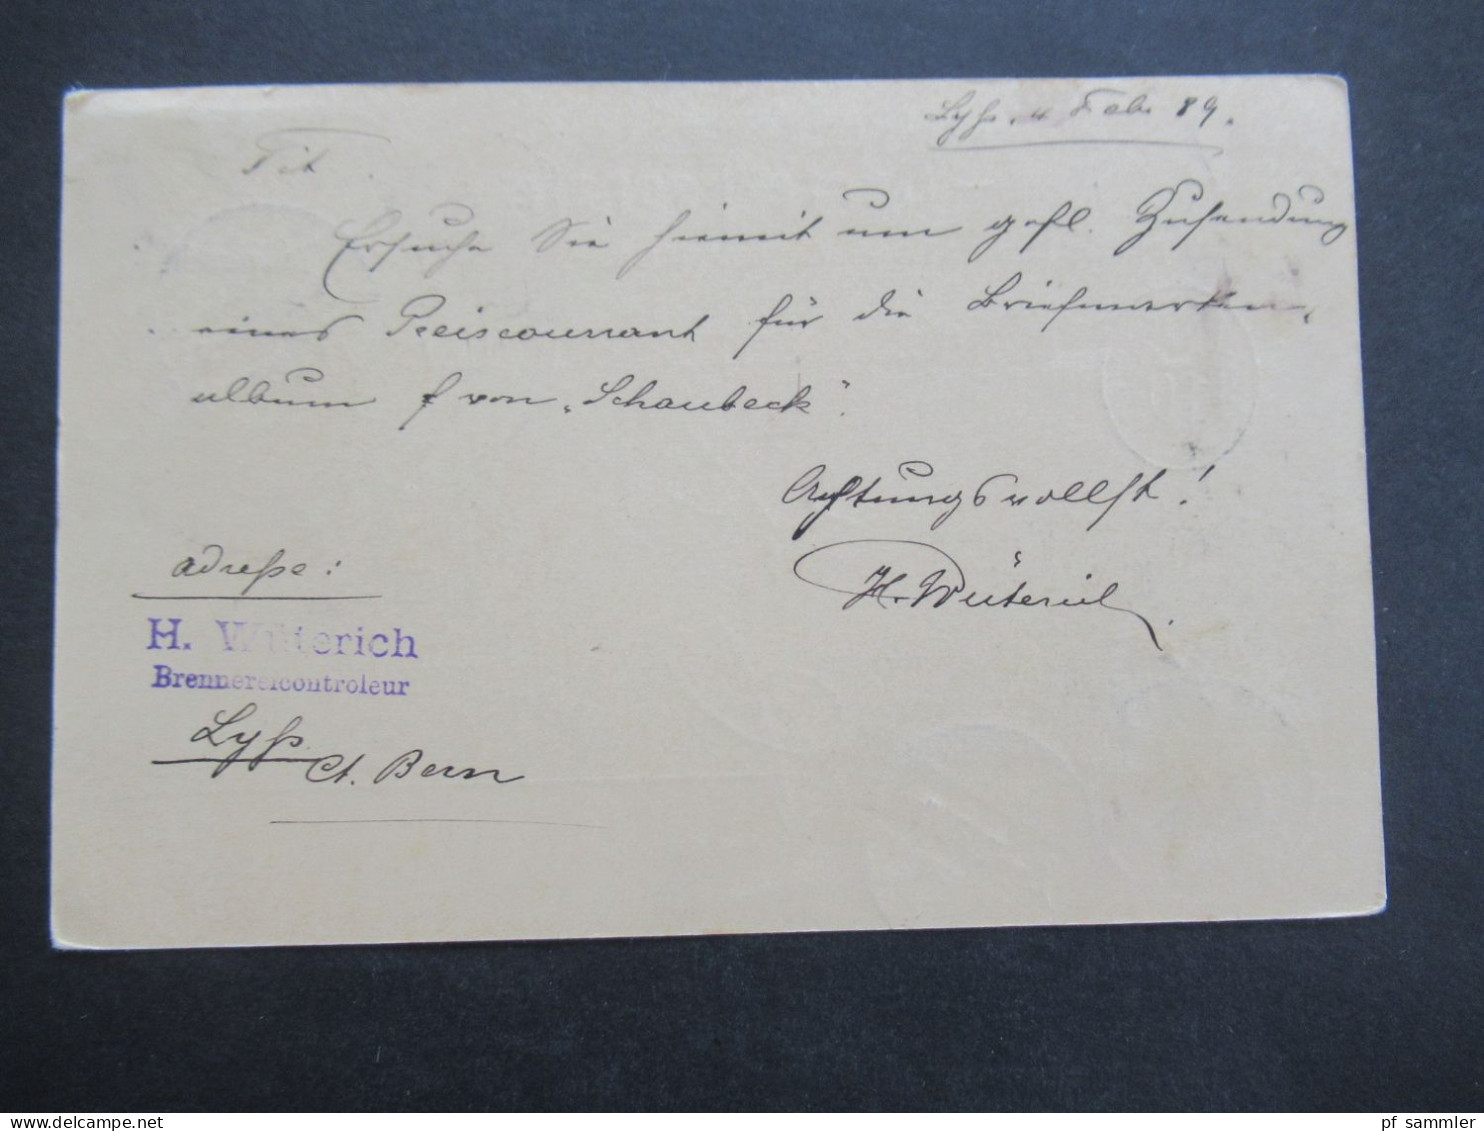 Lyss, 4 Feb. 89.
Tit.
Ersuche Sie hiemit um gefl. Zusendung
eines Preiscourrant für die Briefmarken-
album v von „Schaubeck“.
Achtungsvollst!
H. Wüterich.
Adresse:
H. Wüterich
Brennereicontroleur
Lyss
Ct. Bern
pf_sammler